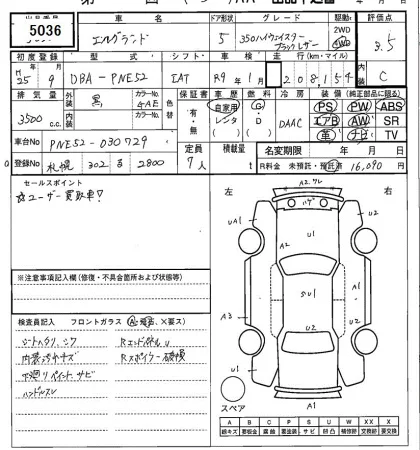 5036
車名
ドア形状
グレード
駆動
評価点
エルグランド
5
350ハイウェイスター
ブラックレザー
2WD
4WD
3.5
初度登録
型式
シフト
車検
走行(km・マイル)
内装
H25 9月
DBA-PNE52
IAT
R9年1月
208,154
C
排気量
外装
カラーNo.
色替
保証書
車歴
燃料
冷房
装備(純正部品に限る)
3500 c.c.
黒
GAE
有・無
自家用
レンタ
G
D
AAC
PS PW ABS
エアB AW SR
革 ナビ TV
車台No
PNE52-030729
定員
7人
積載量
t
名変期限
年 月 日
登録No
札幌 302 る 2800
R料金 未預託・預託 16,090 円
セールスポイント
☆ユーザー買取車!
左
右
※注意事項記入欄(修復・不具合箇所および状態)
検査員記入 フロントガラス(A・飛石、×要ス)
シートヘタリ、シワ
内装スレキズ
下廻りペイント、サビ
ハンドルスレ
RエンドパネルU
Rスポイラー破損
A2
UA1
U1
U2
A2
UA1
U1
A3
U2
U2
スペア
A1
A B C P S U W X XX
線キズ 有板金 腐蝕 要塗装 サビ 凹凸 補修跡 交換跡 要交換